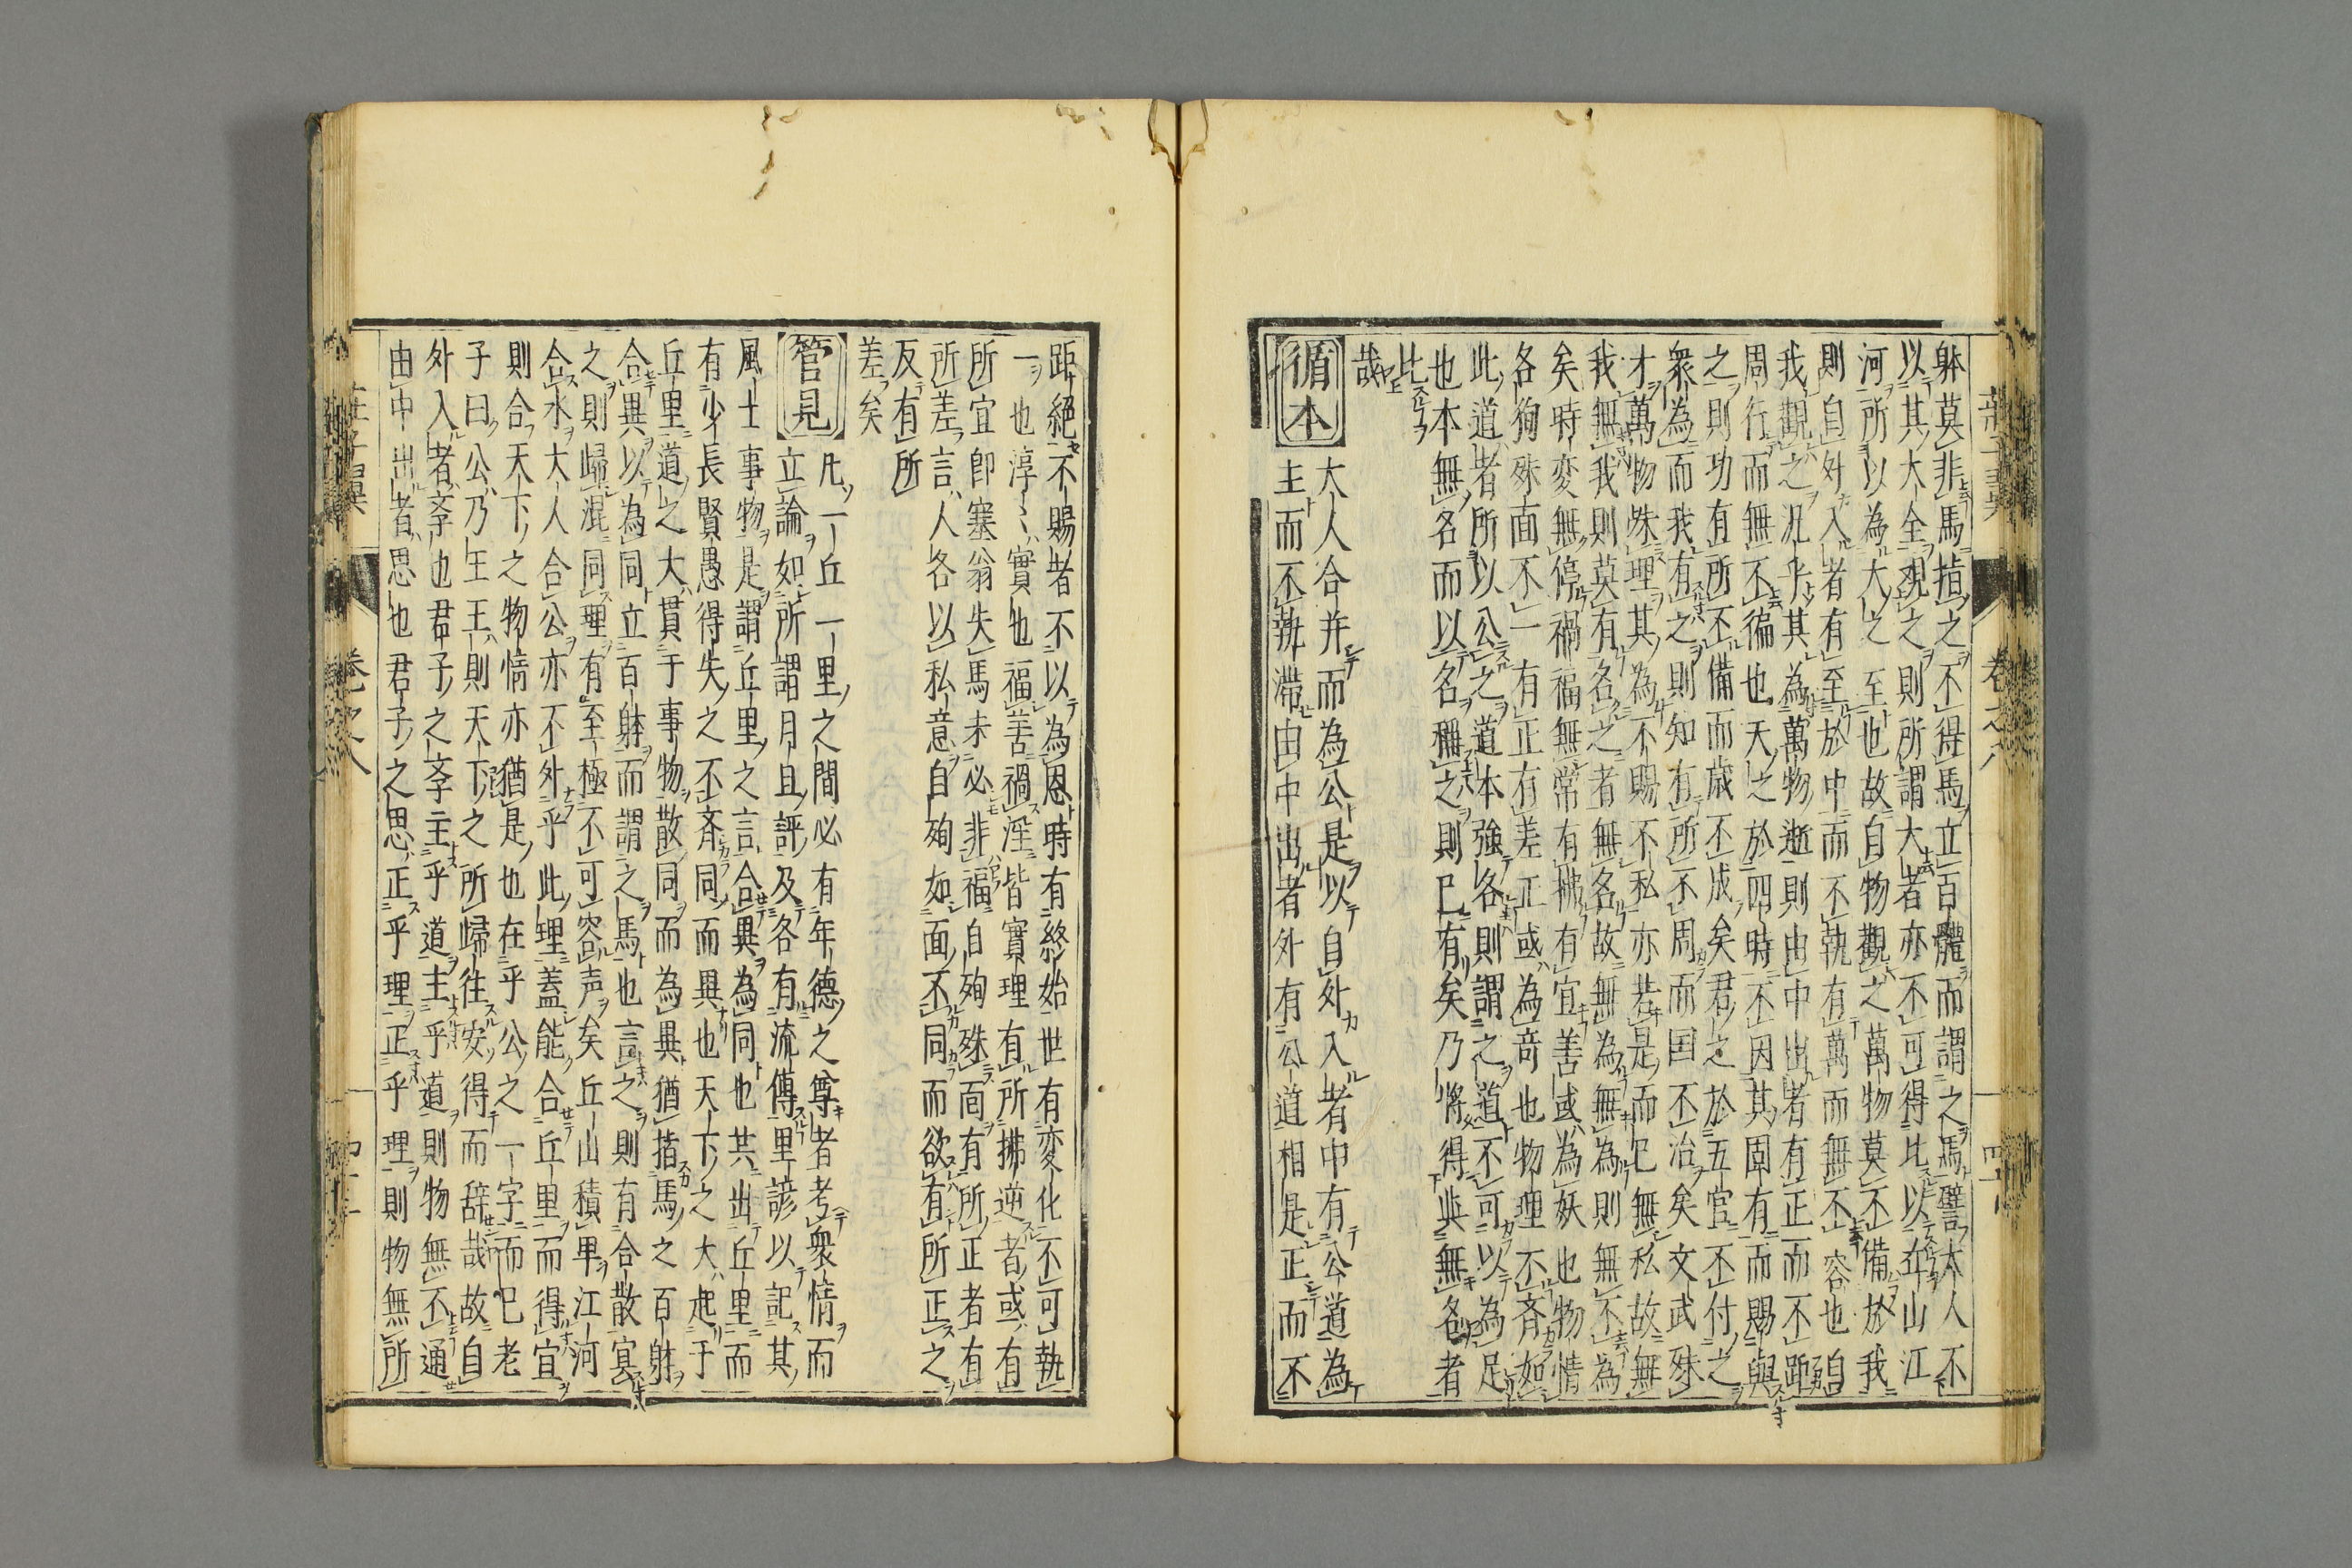 躰莫非馬指之不得馬立百體而謂之馬譬大人不
以其大全覌之則所謂大者亦不可得比以丘山江
河所以為大之至也故自物觀之萬物莫不備於我
則自外入者有至於中而不執有萬而無不容也自
我觀之汎乎其為萬物逝則由中出者有正而不距
周行而無不徧也天之於四時不因其固有而賜與
之則功有所不備而歳不成矣君之於五官不付之
衆為而我有之則知有所不周而国不治矣文武殊
才萬物殊理其為不賜不私亦若是而已無私故無
我無我則莫有名之者無名故無為無為則無不為
矣時変無停禍福無常有拂有宜善或為妖也物情
各徇殊面不一有正有差正或為奇也物理不斉如
此道者所以公之道本強各則謂之道不可以為足
也本無名而以名稱之則已有矣乃將得與無名者
此
哉
循本
大人合并而為公是以自外入者中有公道為
主而不執滯由中出者外有公道相是正而不
距絕不賜者不以為恩時有終始世有変化不可執
一也淳〻實也福善禍淫皆實理有所拂逆者或有
所宜即塞翁失馬未必非福自殉殊面有所正者有
所差言人各以私意自殉如面不同而欲有所正之
反有所
差矣
管見
凡一丘一里之間必有年德之尊者考衆情而
立論如所謂月旦評及各有流傳里諺以記其
風土事物是謂丘里之言合異為同也共出丘里而
有少長賢愚得失之不斉同而異也天下之大起于
丘里道之大貫于事物散同而為異猶指馬之百躰
合異以為同立百躰而謂之馬也言之則有合散冥
之則歸混同理有至極不可容声矣丘山積卑江河
合水大人合公亦不外乎此理蓋能合丘里而得宜
則合天下之物情亦猶是也在乎公之一字而已老
子曰公乃王王則天下之所歸往安得而辞哉故自
外入者斈也君子之斈主乎道主乎道則物無不通
由中出者思也君子之思正乎理正乎理則物無所